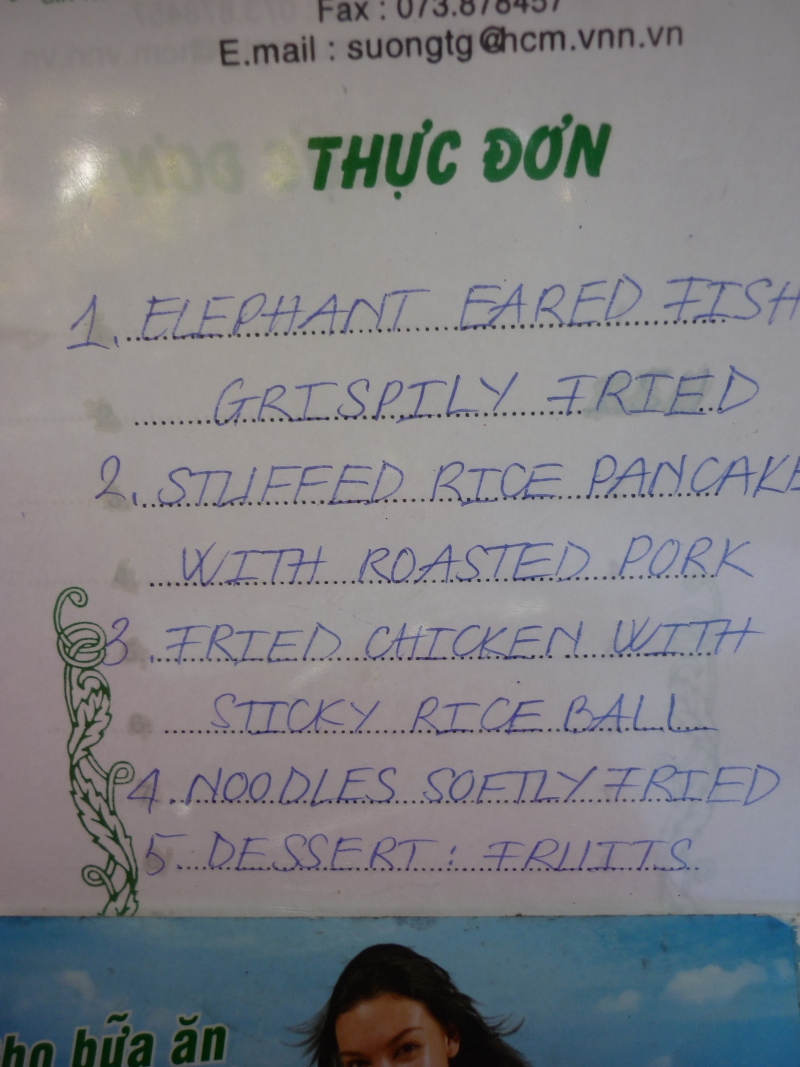 Fax : 073.878457
E.mail : suongtg@hcm.vnn.vn
THỰC ĐƠN
1. ELEPHANT EARED FISH
GRISPILY FRIED
2. STUFFED RICE PANCAKE
WITH ROASTED PORK
3. FRIED CHICKEN WITH
STICKY RICE BALL
4. NOODLES SOFTLY FRIED
5. DESSERT : FRUITS
bữa ăn